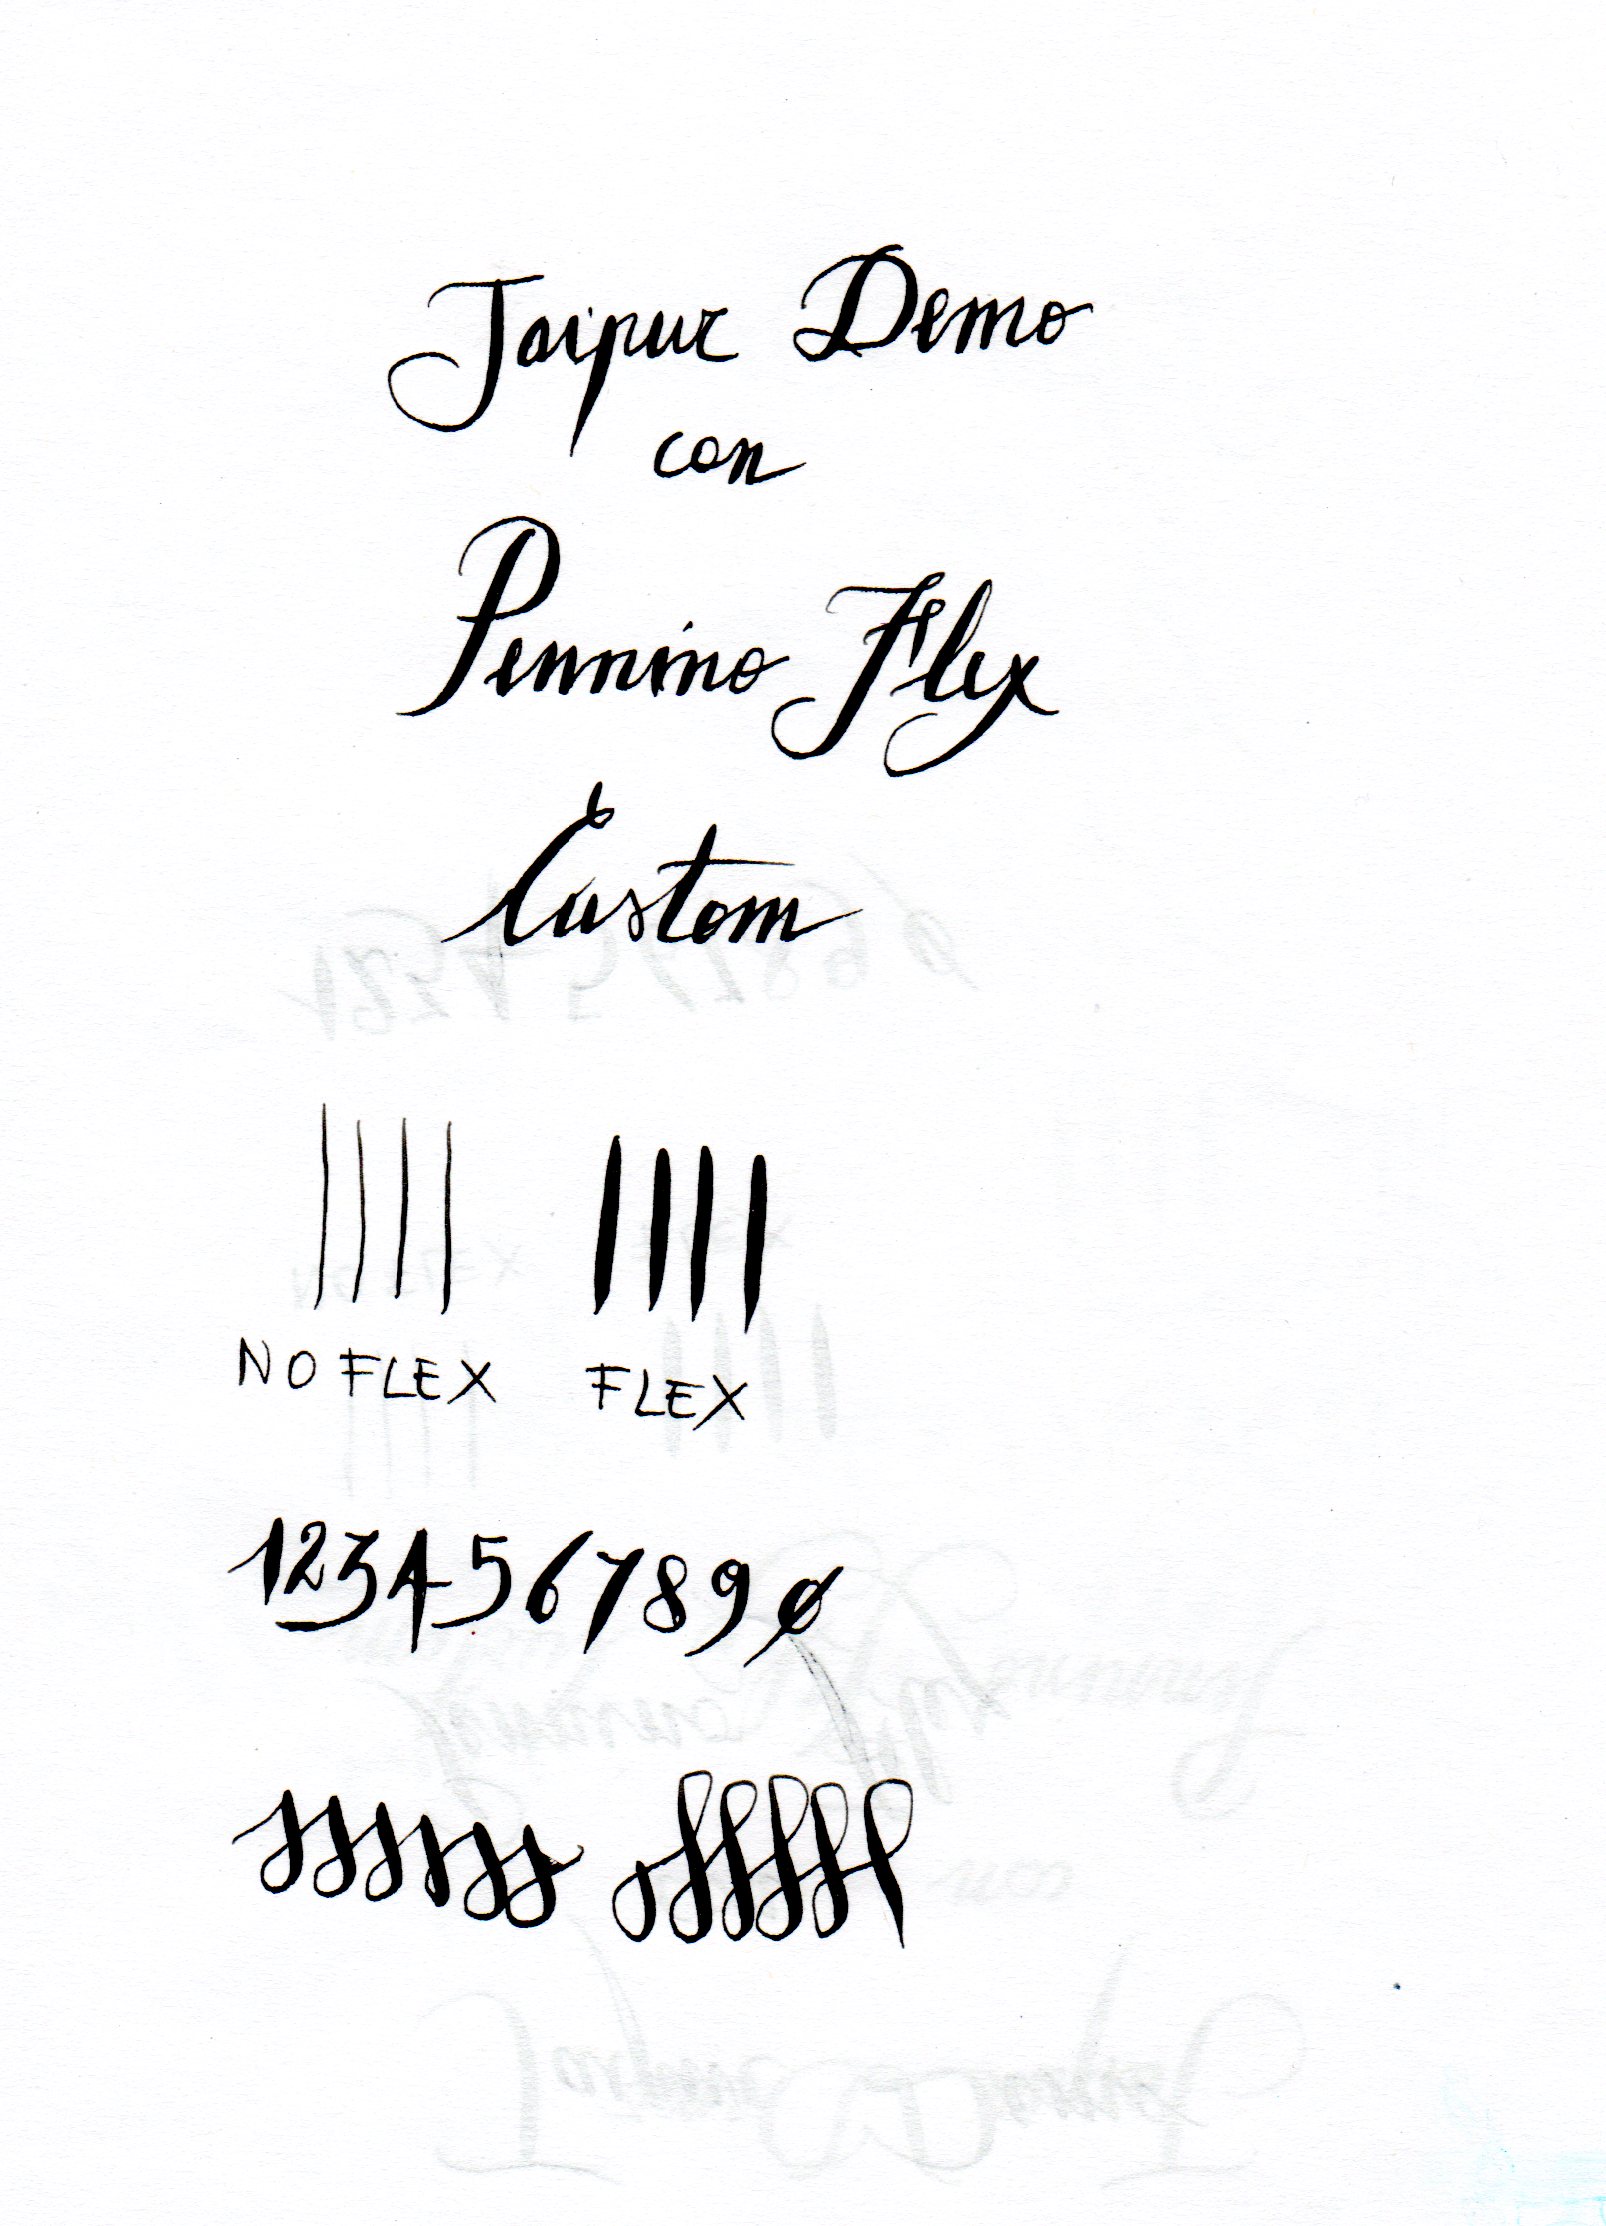 Jaipur Demo
con
Pennino Flex
Custom
NO FLEX FLEX
1234567890